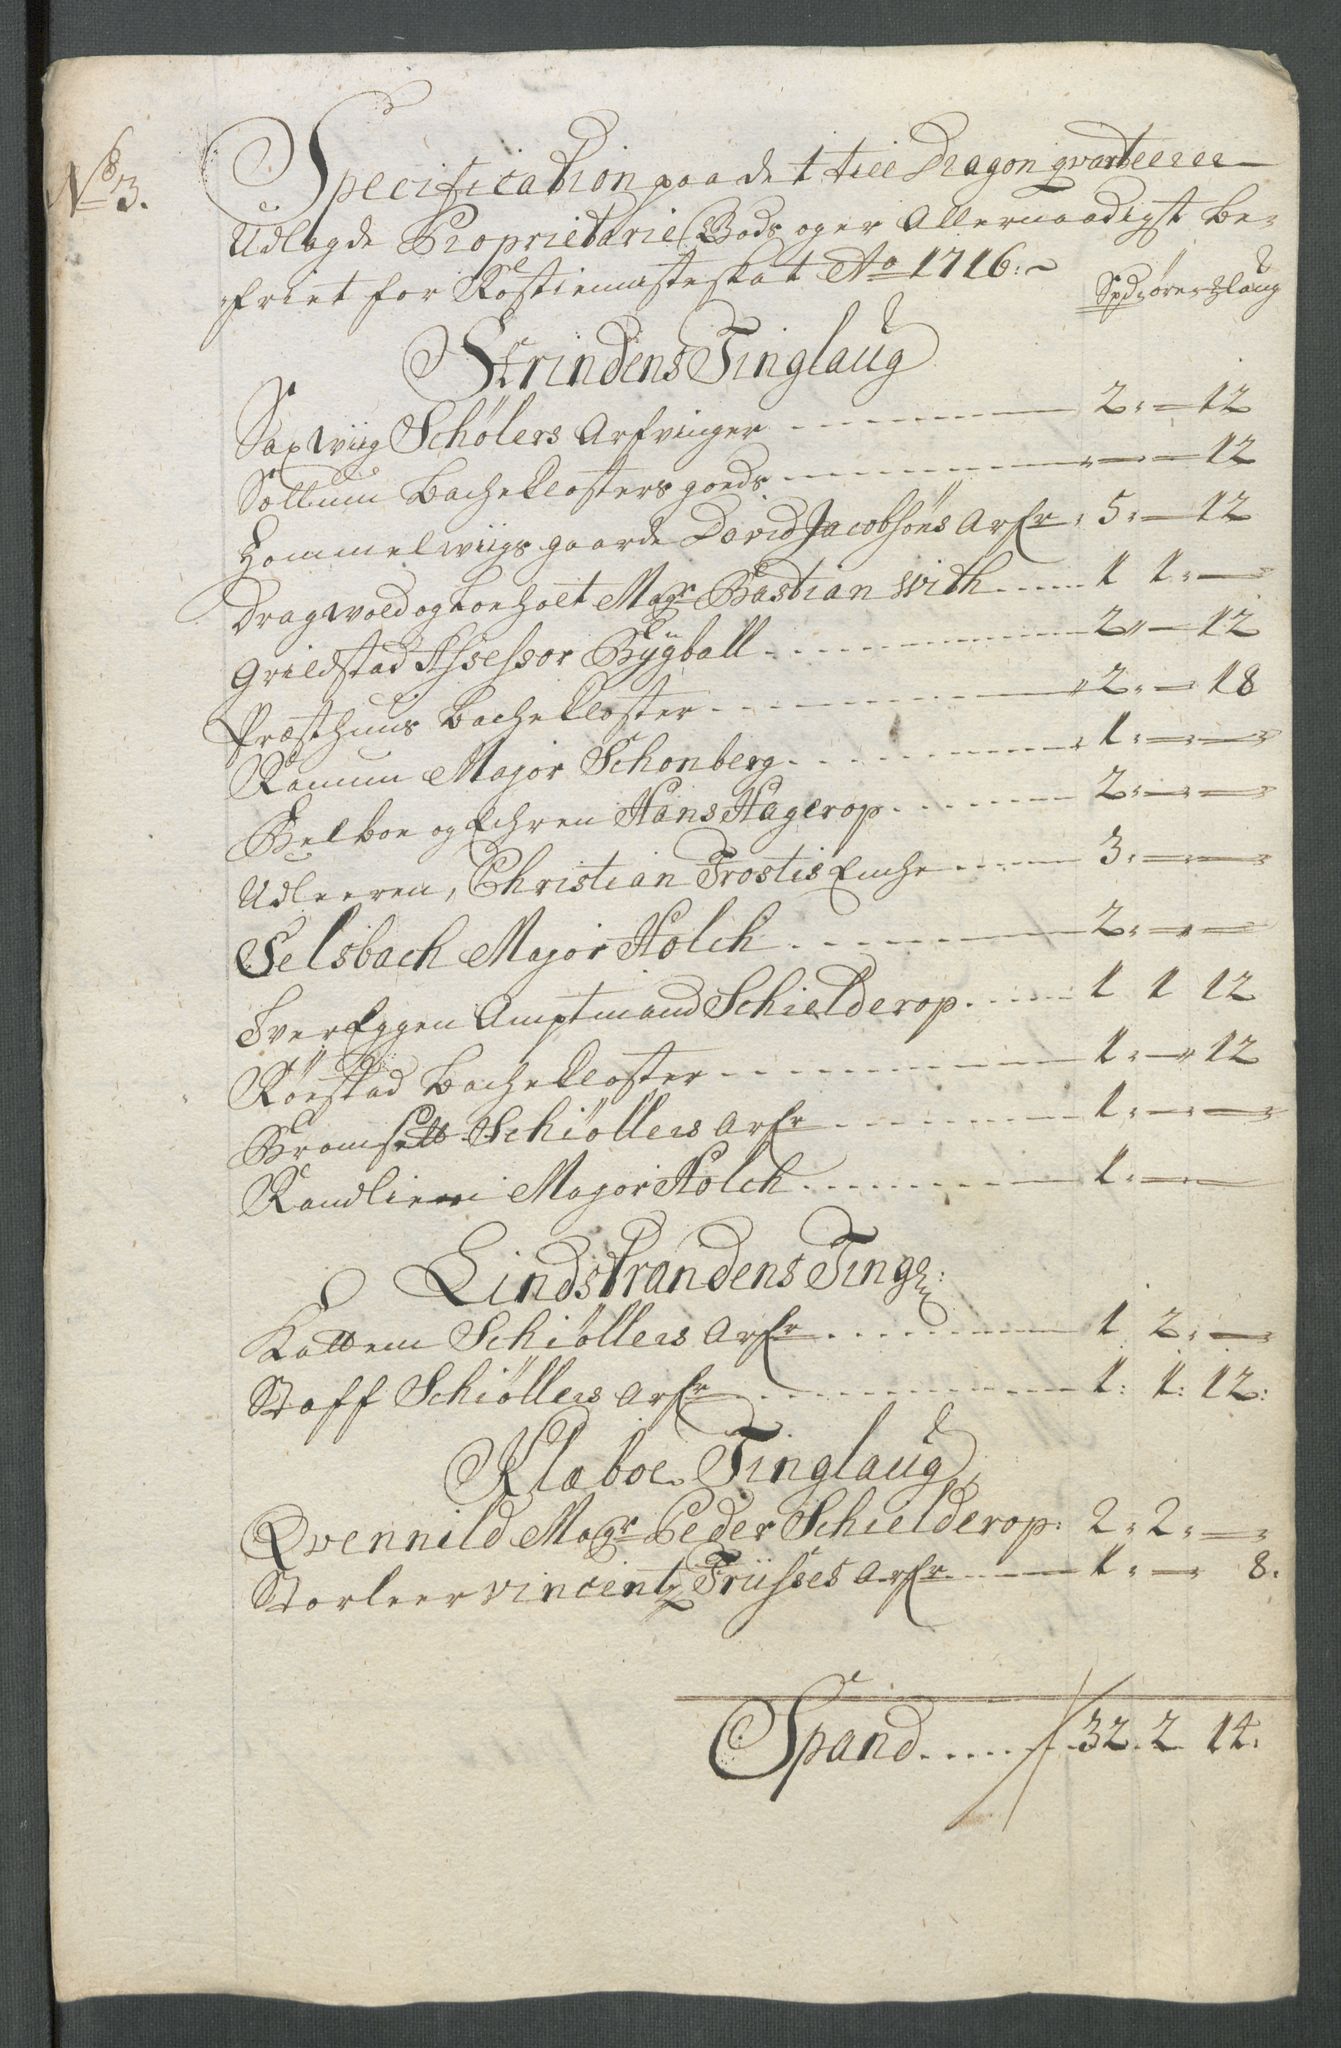 No 3.
Specification paa det till Dragon qvarteerer
Udlagde Proprietarie Gods og er Allernaadigst be-
friet for Rostienniste skat Ao 1716:
Spd: ører Xlaug
Strindens Tinglaug
Saxwiig Schølers Arfvinger 2: — 12
Sollum Backe Closters goeds — — 12
Hommelwiigs gaarde David Jacobsøns Arfr 5: — 12
Dragwold og Loeholt Magr Bastian With 1 1: —
Grildstad Assessor Bÿgball 2: — 12
Præsthuus Backe Closter 2: — 18
Ranum Major Schonberg 1: — —
Belboe og Ehren Hans Hagerop 2: — —
Udleeren, Christian Frostis Enche 3: — —
Selsbach Major Holck 2: — —
Tver Eggen Amptmand Schielderop 1 1 12
Rønstad Backe Closter 1: — 12
Bromsett Schiøllers Arfr 1: — —
Randlien Major Holck 1: — —
Lindstrandens Tingl:
Kattem Schiøllers Arfr 1 2: —
Staff Schiøllers Arfr 1: 1: 12:
Klæboe Tinglaug
Qvennild Magr Peder Schielderop: 2: 2: —
Storleer Vincentz Friisses Arfr 1: — 8.
Spand 32. 2 14: